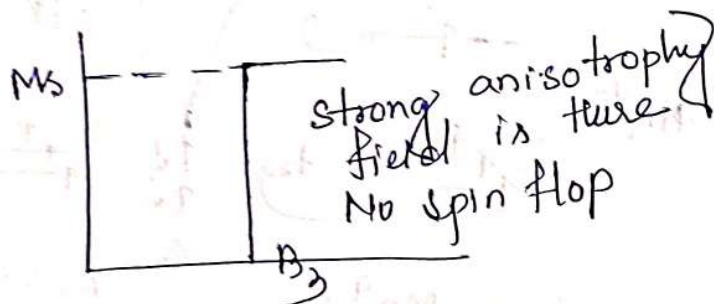 Ms
strong anisotrophy
field is there
No spin flop
B3